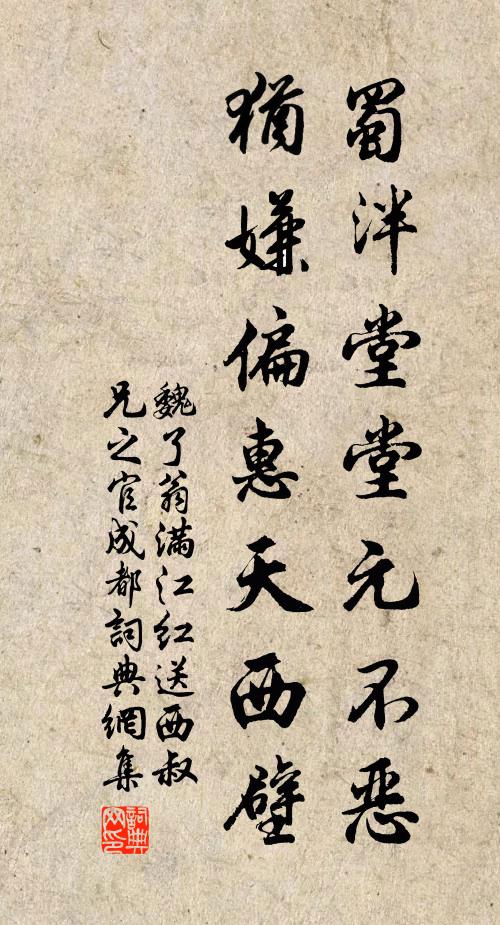 蜀泮堂堂元不恶
犹嫌偏惠天西壁
魏了翁满江红送西叔
兄之官成都詞典網集
詞典
网印